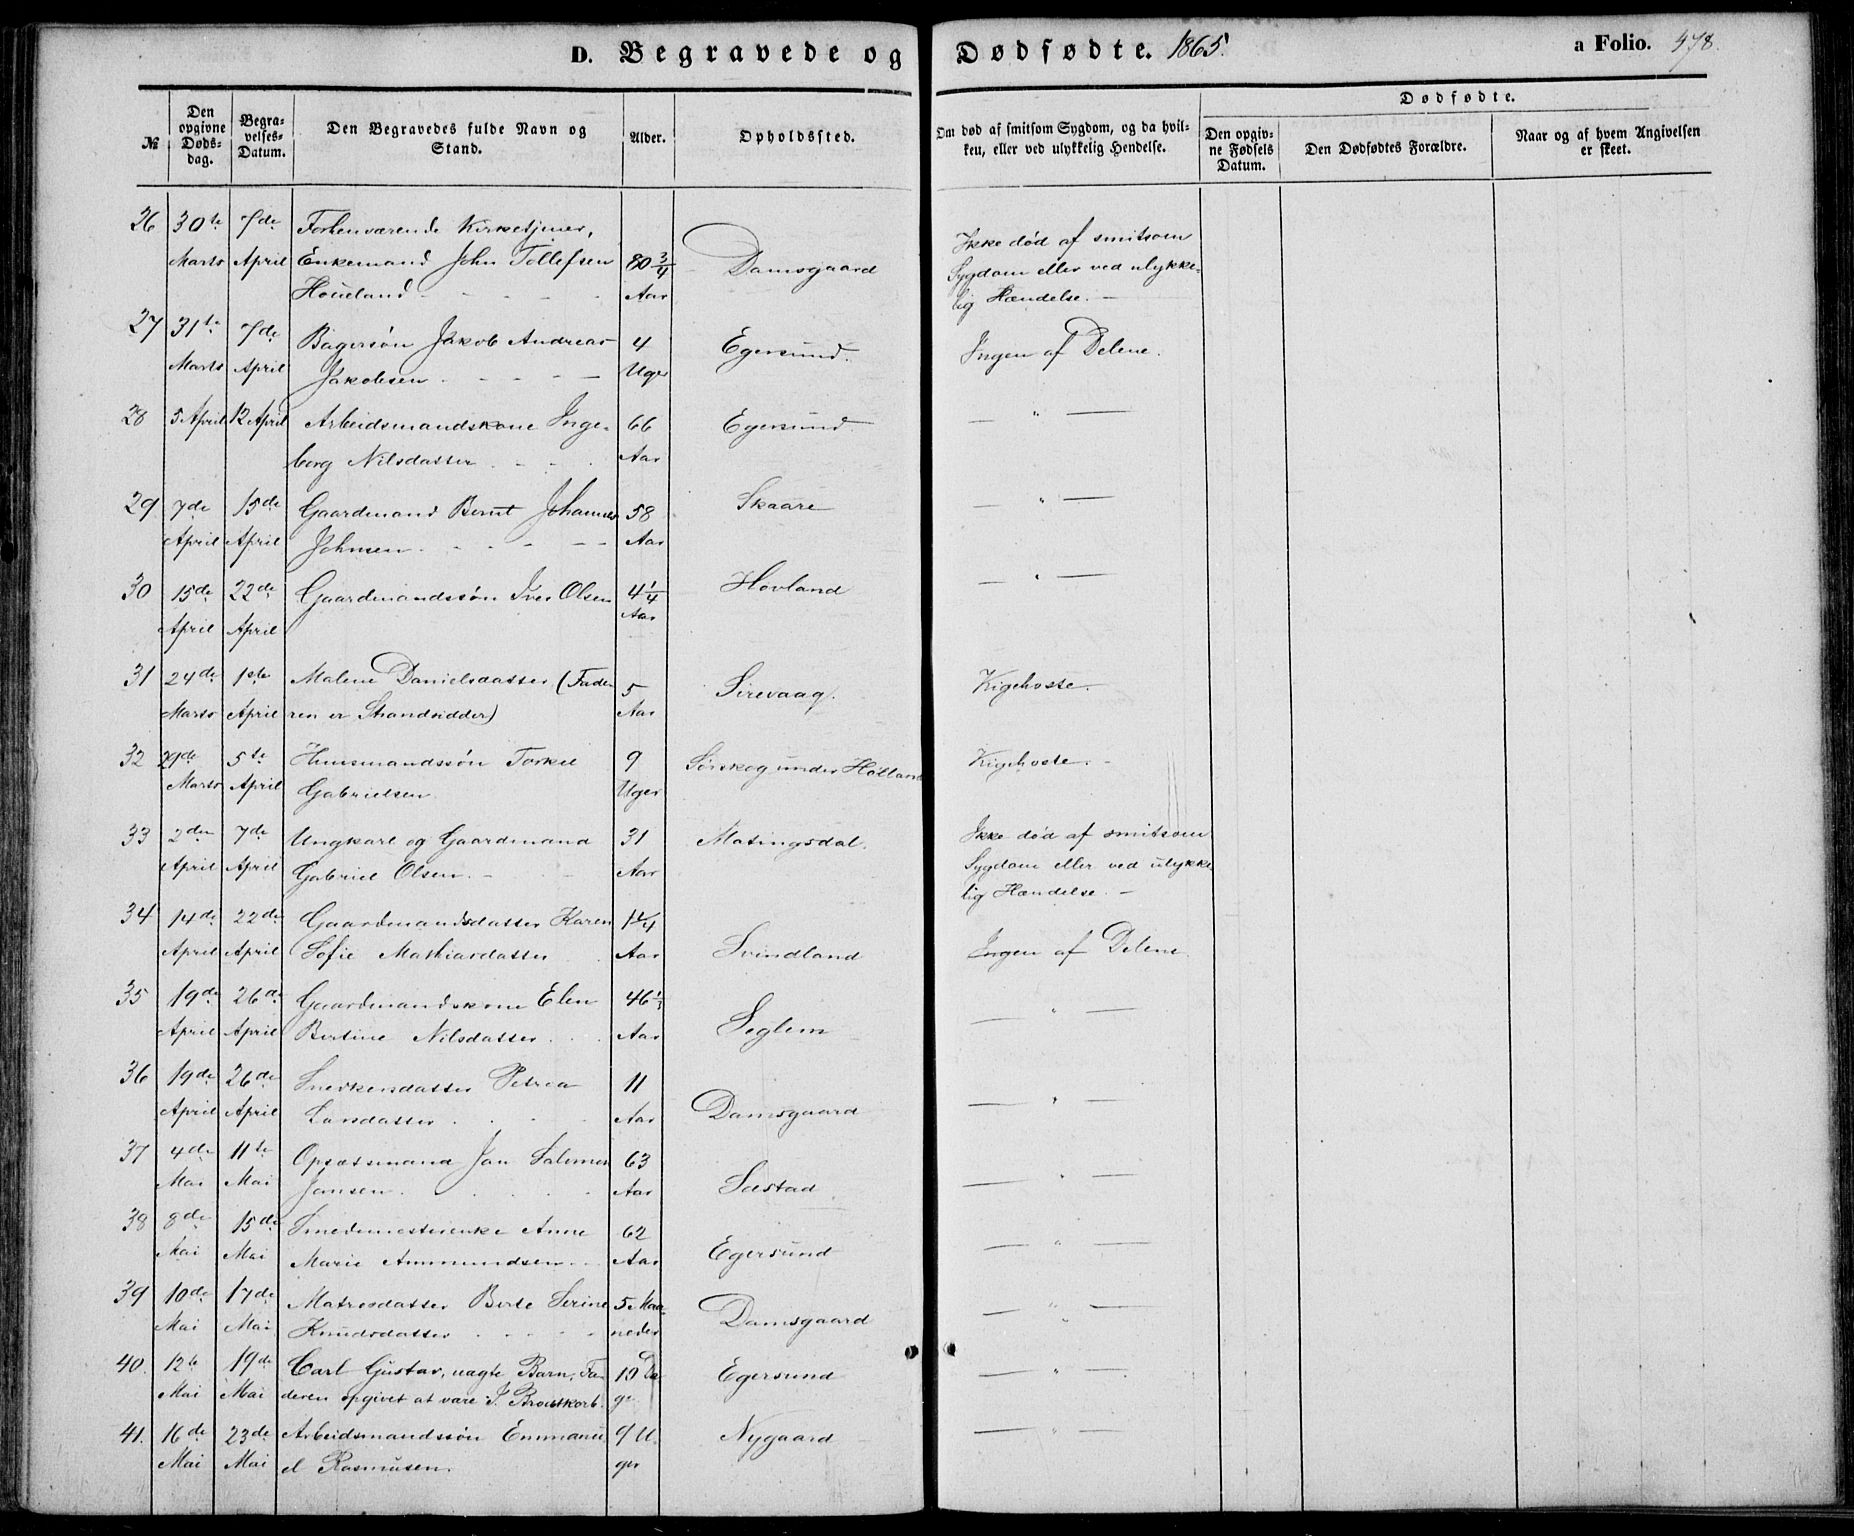 D. Begravede og Dødfødte. 1865. a Folio. 478.
№ Den opgivne Døds-dag. Begra-velses-Datum. Den Begravedes fulde Navn og Stand. Alder. Opholdssted. Om død af smitsom Sygdom, og da hvil-ken, eller ved ulykkelig Hendelse. Dødfødte. Den opgiv-ne Fødsels Datum. Den Dødfødtes Forældre. Naar og af hvem Angivelsen er skeet.
26 30te 7de Forhenværende Kirketjener,
Marts April Enkemand John Tollefsen 80 3/4 Damsgaard Ikke død af smitsom
Houeland Aar Sygdom eller ved ulykke-
lig Hændelse. –
27 31te 7de Bagersøn Jakob Andreas 4 Egersund. Ingen af Delene.
Marts April Jakobsen Uger
28 5 April 12 April Arbeidsmandskone Inge- 66 Egersund — " —
borg Nilsdatter Aar
29 7de 15de Gaardmand Bernt Johannes 58 Skaare — " —
April April Johnsen Aar
30 15de 22de Gaardmandssøn Iver Olsen 4 1/4 Hovland — " —
April April Aar
31 24de 1ste Malene Danielsdatter (Fade- 5 Sirevaag. Kigehoste.
Marts April ren er Strandsidder) Aar
32 29de 5te Huusmandssøn Torkel 9 Sørskog under Hølland Kigehoste. –
Marts April Gabrielsen Uger
33 2den 7de Ungkarl og Gaardmand 31 Matingsdal. Ikke død af smitsom
April April Gabriel Olsen. Aar Sygdom eller ved ulykke
lig Hændelse. –
34 14de 22de Gaardmandsdatter Karen 1 1/4
April April Sofie Mathiasdatter Aar Svindland Ingen af Delene.
35 19de 26de Gaardmandskone Elen 46 1/2 — " —
April April Bertine Nilsdatter Aar Seglem
36 19de 26de Snedkersdatter Petrea 11 — " —
April April Aar Damsgaard
37 4de 11te Opsætsmand Jan Salomon 63 — " —
Mai Mai Jansen Aar Sæstad
38 8de 15de Smedemesterenke Anne 62 — " —
Mai Mai Marie Ammundsen Aar Egersund
39 10de 17de Matrosdatter Berte Serine 5 Maa- — " —
Mai Mai Knudsdatter neder Damsgaard
40. 12te 19de Carl Gustav, uægte Barn, Fa- 10 Da Egersund — " —
Mai Mai deren opgivet at være ge
41. 16de 23de Arbeidsmandssøn Emmanu- 9 U- Nygaard — " —
Mai Mai el Rasmusen. ger